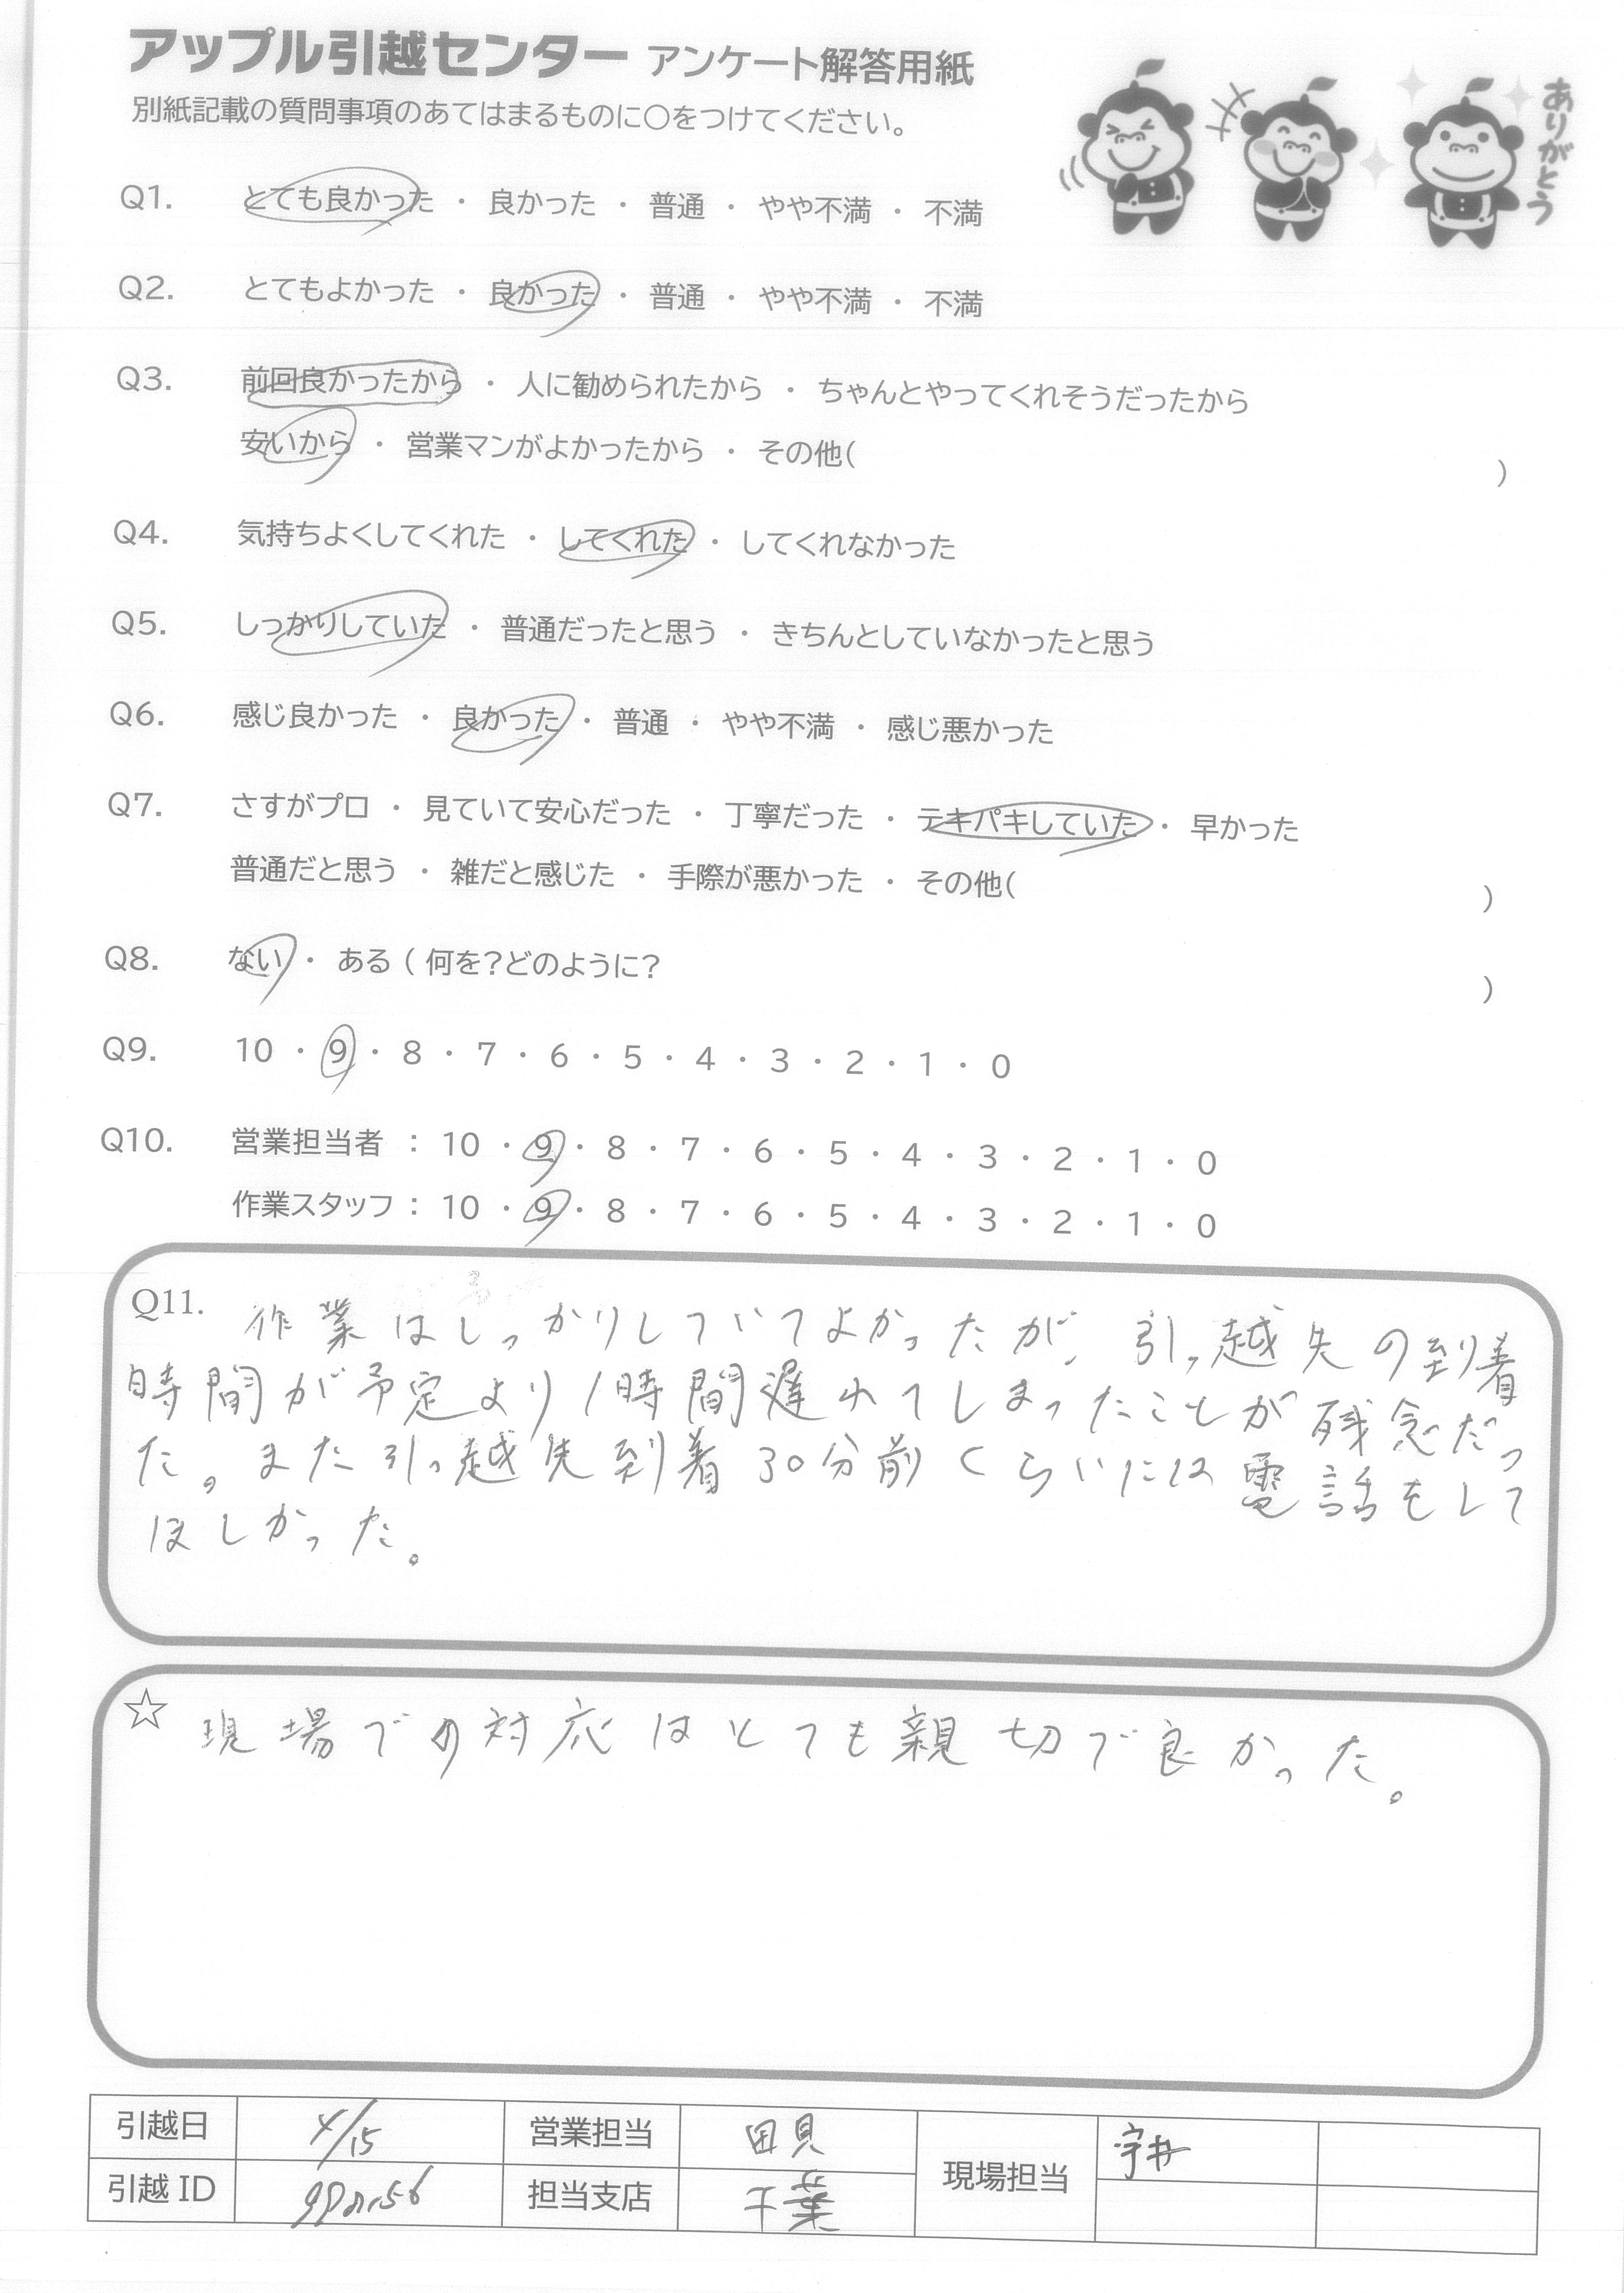 アップル引越センター アンケート解答用紙
別紙記載の質問事項のあてはまるものに〇をつけてください。
ありがとう
Q1. とても良かった ・ 良かった ・ 普通 ・ やや不満 ・ 不満
Q2. とてもよかった ・ 良かった ・ 普通 ・ やや不満 ・ 不満
Q3. 前回良かったから ・ 人に勧められたから ・ ちゃんとやってくれそうだったから
安いから ・ 営業マンがよかったから ・ その他( )
Q4. 気持ちよくしてくれた ・ してくれた ・ してくれなかった
Q5. しっかりしていた ・ 普通だったと思う ・ きちんとしていなかったと思う
Q6. 感じ良かった ・ 良かった ・ 普通 ・ やや不満 ・ 感じ悪かった
Q7. さすがプロ ・ 見ていて安心だった ・ 丁寧だった ・ テキパキしていた ・ 早かった
普通だと思う ・ 雑だと感じた ・ 手際が悪かった ・ その他( )
Q8. ない ・ ある ( 何を?どのように? )
Q9. 10 ・ 9 ・ 8 ・ 7 ・ 6 ・ 5 ・ 4 ・ 3 ・ 2 ・ 1 ・ 0
Q10. 営業担当者 : 10 ・ 9 ・ 8 ・ 7 ・ 6 ・ 5 ・ 4 ・ 3 ・ 2 ・ 1 ・ 0
作業スタッフ : 10 ・ 9 ・ 8 ・ 7 ・ 6 ・ 5 ・ 4 ・ 3 ・ 2 ・ 1 ・ 0
Q11. 作業はしっかりしていてよかったが、引っ越先の到着
時間が予定より1時間遅れてしまったことが残念だっ
た。また引っ越先到着30分前くらいには電話をして
ほしかった。
☆ 現場での対応はとても親切で良かった。
引越日 4/15 営業担当 田貝 現場担当 宇井
引越ID 担当支店 千葉